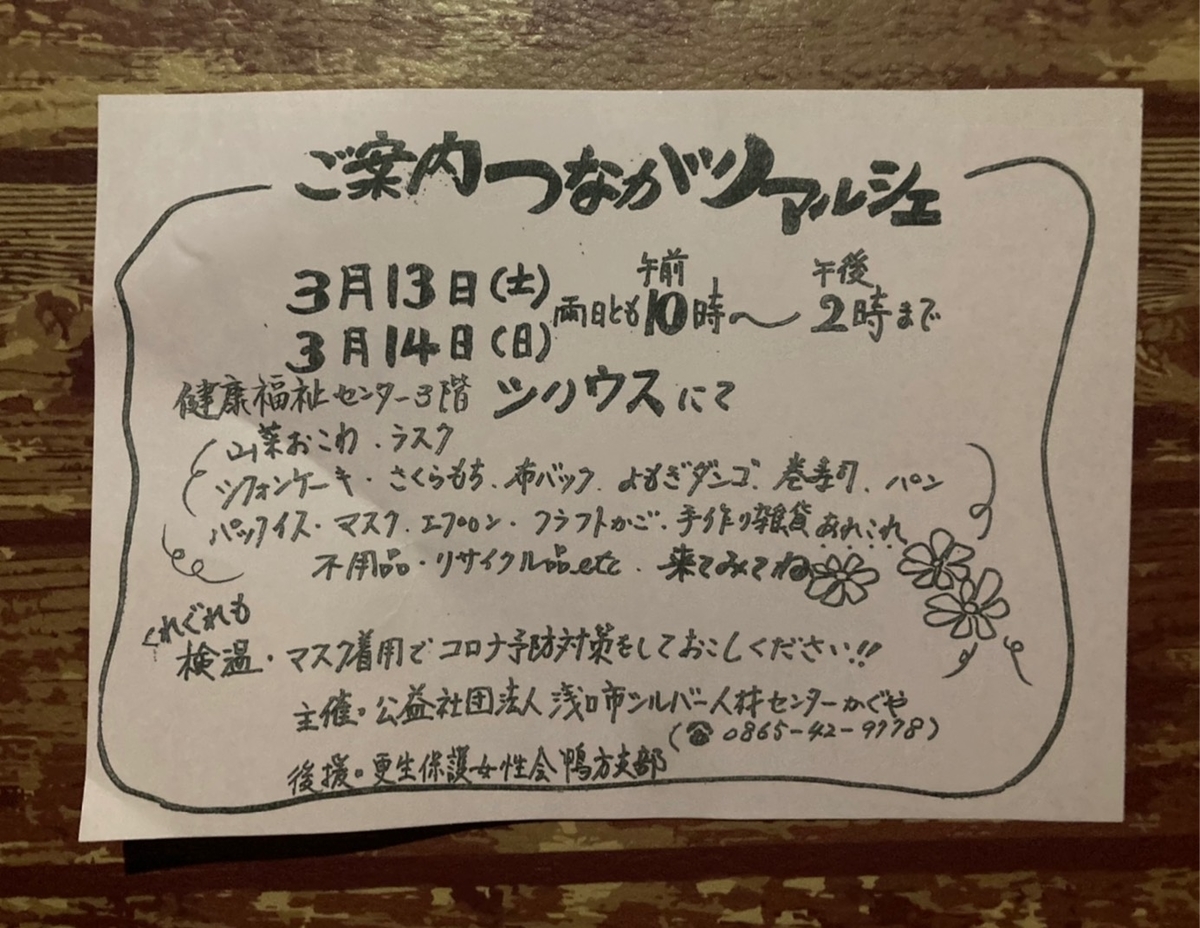 ご案内つながりマルシェ
3月13日(土)
3月14日(日)
両日とも午前10時〜午後2時まで
健康福祉センター3階 ツハウスにて
山菜おこわ、ラスク
シフォンケーキ・さくらもち、布バック、よもぎダンゴ、巻寿司、パン
パックイス・マスク、エプロン・クラフトかご、手作り雑貨あれこれ
不用品・リサイクル品etc. 来てみてね
くれぐれも
検温・マスク着用でコロナ予防対策をしておこしください!!
主催。公益社団法人浅口市シルバー人材センターかぐや
(☎0865-42-9778)
後援。更生保護女性会鴨方支部